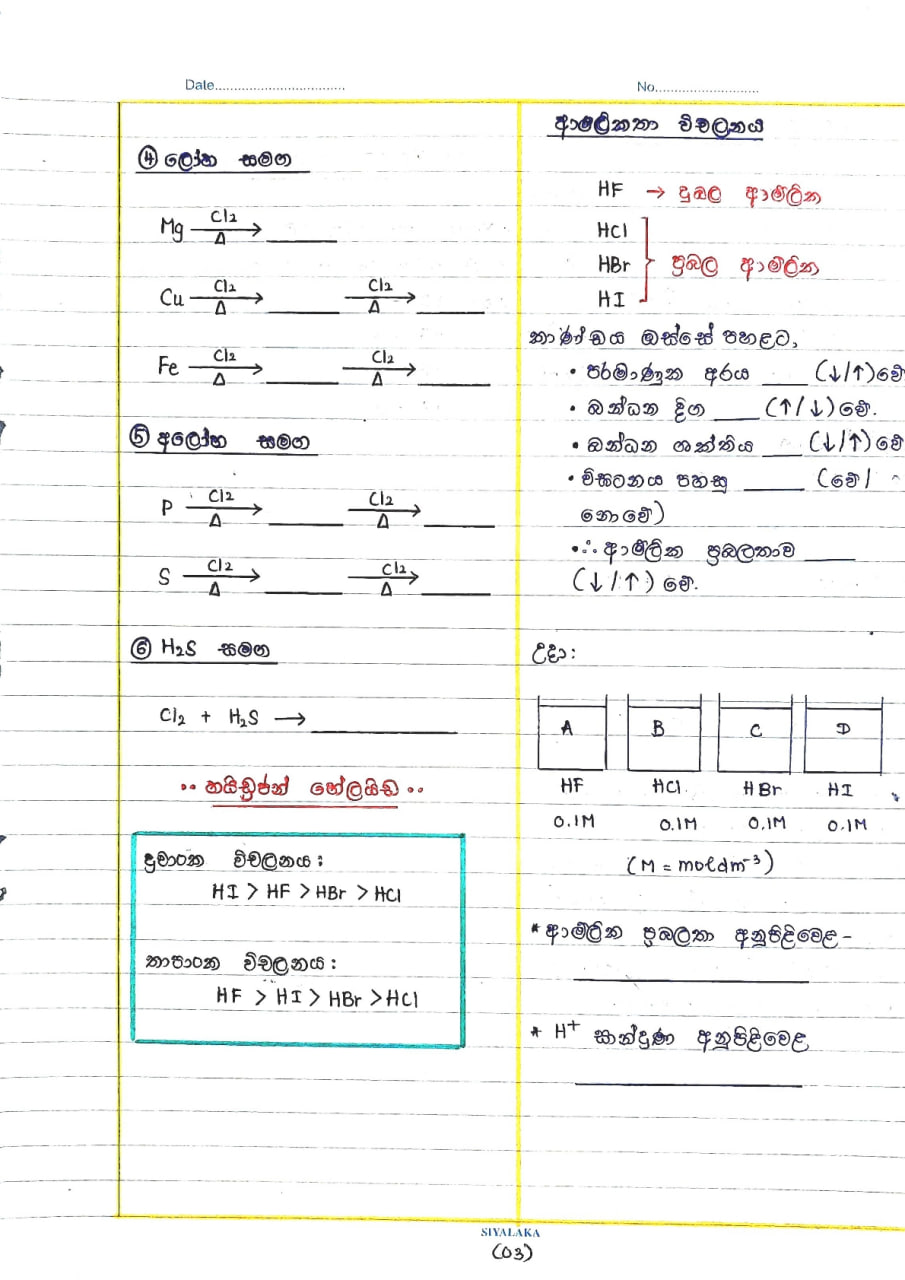 Date................................
No..........................
④ ලෝහ සමඟ
Mg —Cl2/Δ→ ______
Cu —Cl2/Δ→ ______ —Cl2/Δ→ ______
Fe —Cl2/Δ→ ______ —Cl2/Δ→ ______
⑤ අලෝහ සමඟ
P —Cl2/Δ→ ______ —Cl2/Δ→ ______
S —Cl2/Δ→ ______ —Cl2/Δ→ ______
⑥ H₂S සමඟ
Cl₂ + H₂S → ____________
•• හයිඩ්‍රජන් හේලයිඩ ••
ද්‍රවාංක විචලනය :
HI > HF > HBr > HCl
තාපාංක විචලනය :
HF > HI > HBr > HCl
ආම්ලිකතා විචලනය
HF → දුබල ආම්ලික
HCl
HBr } ප්‍රබල ආම්ලික
HI
කාණ්ඩය ඔස්සේ පහළට,
• පරමාණුක අරය ____ (↓/↑) වේ
• බන්ධන දිග ____ (↑/↓) වේ.
• බන්ධන ශක්තිය ____ (↓/↑) වේ
• විඝටනය පහසු ____ (වේ /
නොවේ)
•∴ ආම්ලික ප්‍රබලතාව ____
(↓/↑) වේ.
උදා:
A B C D
HF HCl HBr HI
0.1M 0.1M 0.1M 0.1M
(M = moldm⁻³)
* ආම්ලික ප්‍රබලතා අනුපිළිවෙළ -
____________
* H⁺ සාන්ද්‍රණ අනුපිළිවෙළ
____________
SIYALAKA
(03)